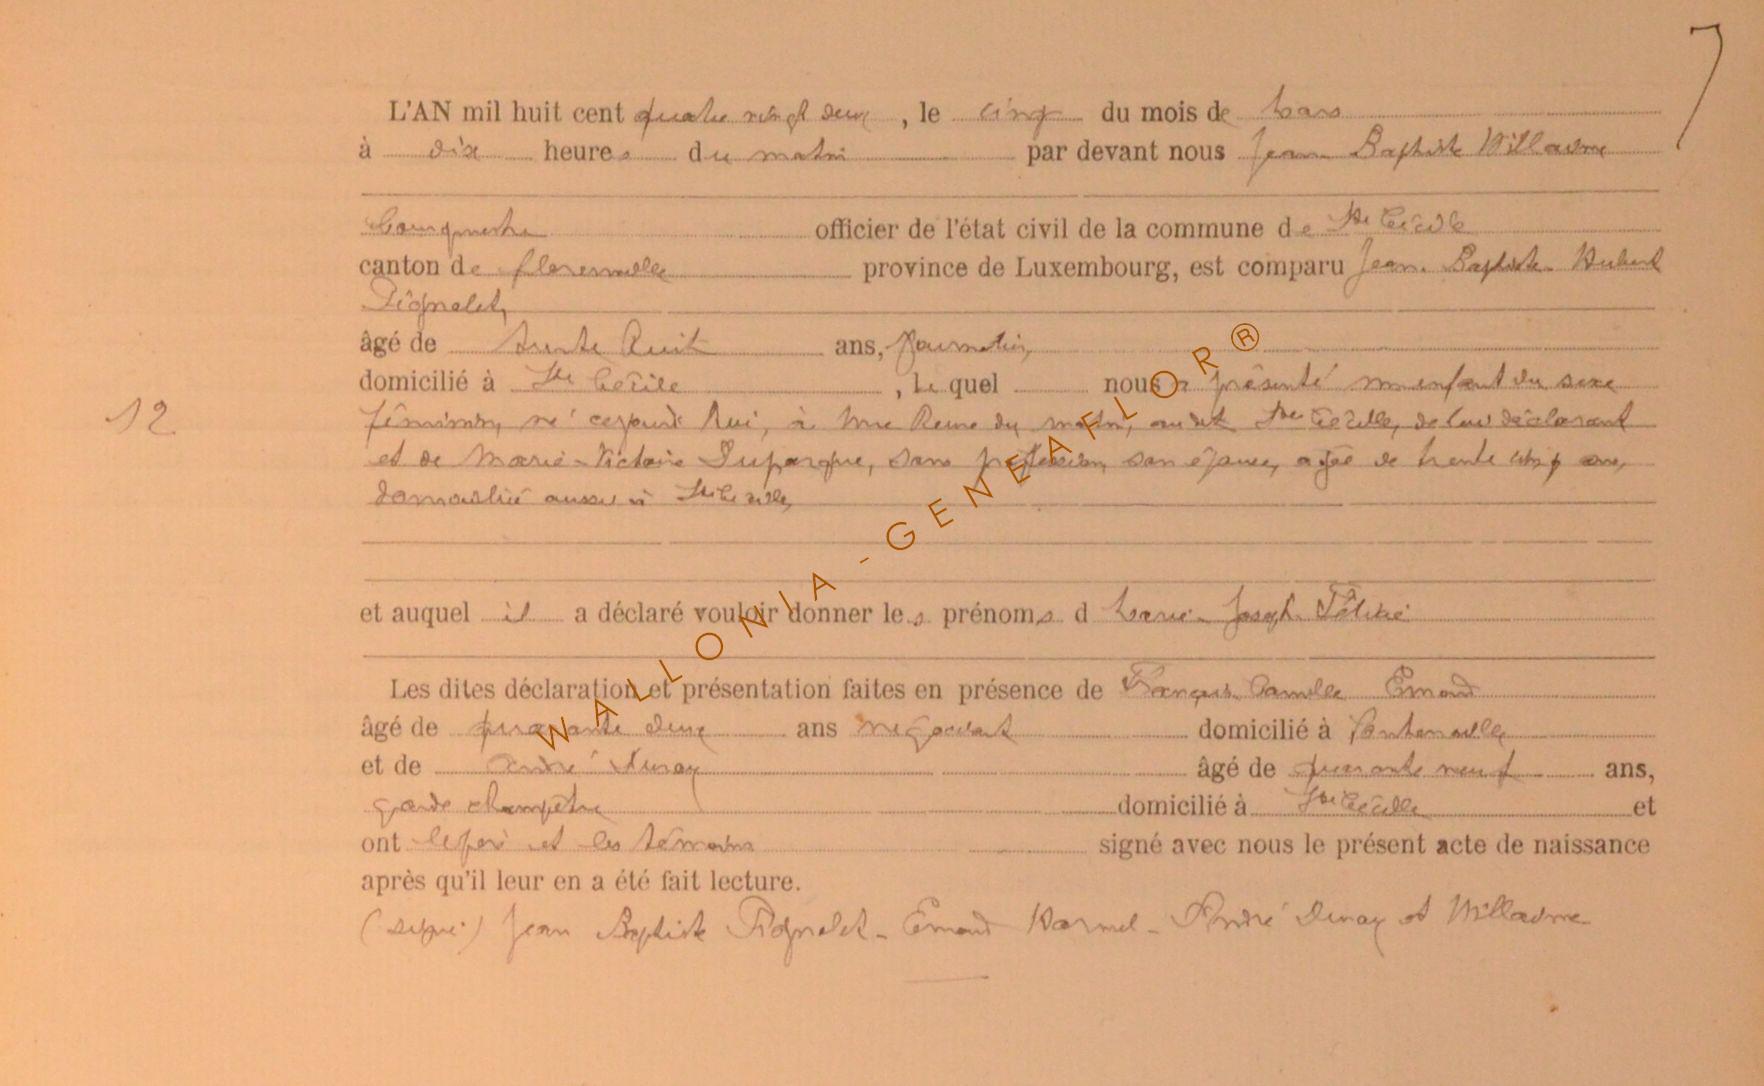 7
L'AN mil huit cent quatre vingt deux, le cinq du mois de Mars
à dix heures du matin par devant nous Jean Baptiste Willaume
Bourgmestre officier de l'état civil de la commune de Ste Cécile
canton de florenville province de Luxembourg, est comparu Jean Baptiste Hubert
Pignolet,
âgé de trente huit ans, journalier,
domicilié à Ste Cécile, lequel nous a présenté un enfant du sexe
12
féminin, né cejourd'hui, à une heure du matin, au dit Ste Cécile, de lui déclarant
et de Marie-Victoire Duparque, sans profession, son épouse, agée de trente cinq ans,
domiciliée aussi à Ste Cécile,
et auquel il a déclaré vouloir donner les prénoms d Marie Joseph
Les dites déclaration et présentation faites en présence de François Camille Emond
âgé de quarante deux ans négociant domicilié à fontenoille
et de André Dury âgé de quarante neuf ans,
garde champêtre domicilié à Ste Cécile et
ont le père et les témoins signé avec nous le présent acte de naissance
après qu'il leur en a été fait lecture.
(signé) Jean Baptiste Pignolet - Emond - André et Willaume
WALLONIA-GENEAFLOR®